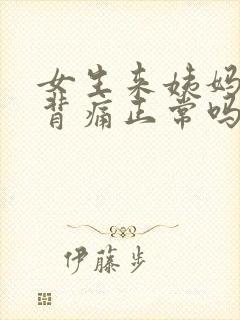 女生来姨妈
背痛正常吗
伊藤步